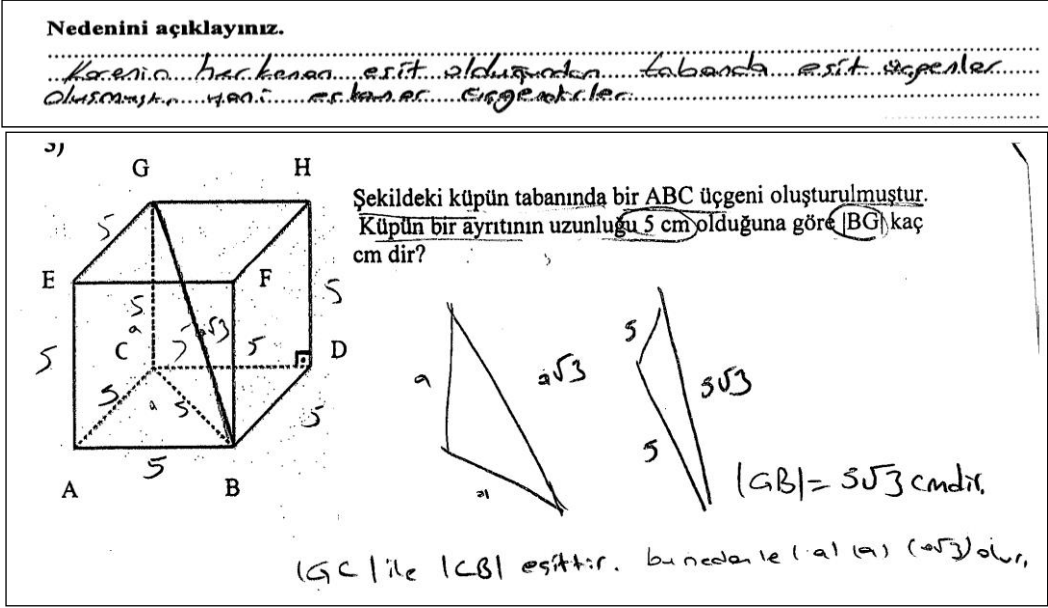 Nedenini açıklayınız.
Karenin her kenarı eşit olduğundan tabanda eşit üçgenler
oluşmuştur yani eşkenar üçgendirler.
3)
G H
Şekildeki küpün tabanında bir ABC üçgeni oluşturulmuştur.
Küpün bir ayrıtının uzunluğu 5 cm olduğuna göre |BG| kaç
cm dir?
5
E F
5
5
a
a√3
5
5
C
D
5
5
a
5
5
A B
a
a√3
a
5
5√3
5
|GB|= 5√3 cmdir.
|GC| ile |CB| eşittir. bu nedenle (a) (a) (a√3) olur.